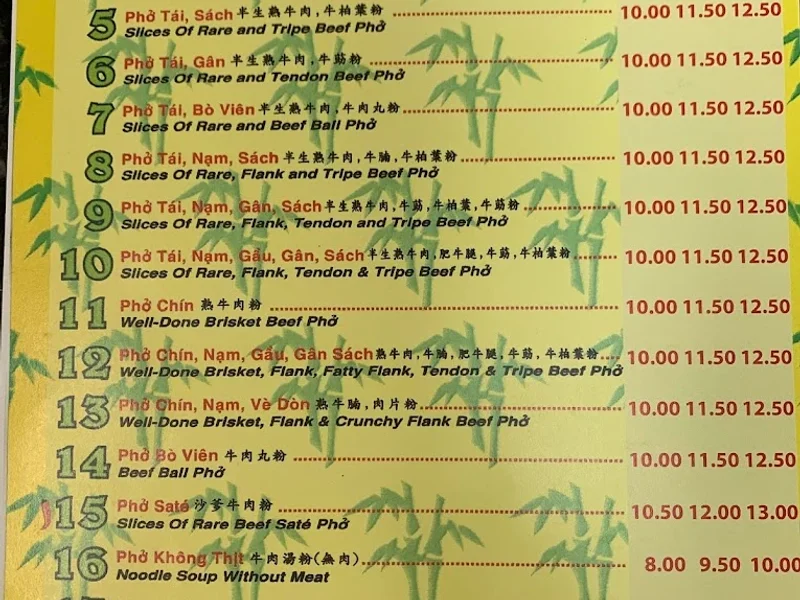 5 Phở Tái, Sách 半生熟牛肉,牛柏葉粉 10.00 11.50 12.50
Slices Of Rare and Tripe Beef Phở
6 Phở Tái, Gân 半生熟牛肉,牛筋粉 10.00 11.50 12.50
Slices Of Rare and Tendon Beef Phở
7 Phở Tái, Bò Viên 半生熟牛肉,牛肉丸粉 10.00 11.50 12.50
Slices Of Rare and Beef Ball Phở
8 Phở Tái, Nạm, Sách 半生熟牛肉,牛腩,牛柏葉粉 10.00 11.50 12.50
Slices Of Rare, Flank and Tripe Beef Phở
9 Phở Tái, Nạm, Gân, Sách 半生熟牛肉,牛筋,牛柏葉,牛筋粉 10.00 11.50 12.50
Slices Of Rare, Flank, Tendon and Tripe Beef Phở
10 Phở Tái, Nạm, Gầu, Gân, Sách 半生熟牛肉,肥牛腿,牛筋,牛柏葉粉 10.00 11.50 12.50
Slices Of Rare, Flank, Tendon & Tripe Beef Phở
11 Phở Chín 熟牛肉粉 10.00 11.50 12.50
Well-Done Brisket Beef Phở
12 Phở Chín, Nạm, Gầu, Gân Sách 熟牛肉,牛腩,肥牛腿,牛筋,牛柏葉粉 10.00 11.50 12.50
Well-Done Brisket, Flank, Fatty Flank, Tendon & Tripe Beef Phở
13 Phở Chín, Nạm, Vè Dòn 熟牛腩,肉片粉 10.00 11.50 12.50
Well-Done Brisket, Flank & Crunchy Flank Beef Phở
14 Phở Bò Viên 牛肉丸粉 10.00 11.50 12.50
Beef Ball Phở
15 Phở Saté 沙爹牛肉粉 10.50 12.00 13.00
Slices Of Rare Beef Saté Phở
16 Phở Không Thịt 牛肉湯粉(無肉) 8.00 9.50 10.00
Noodle Soup Without Meat